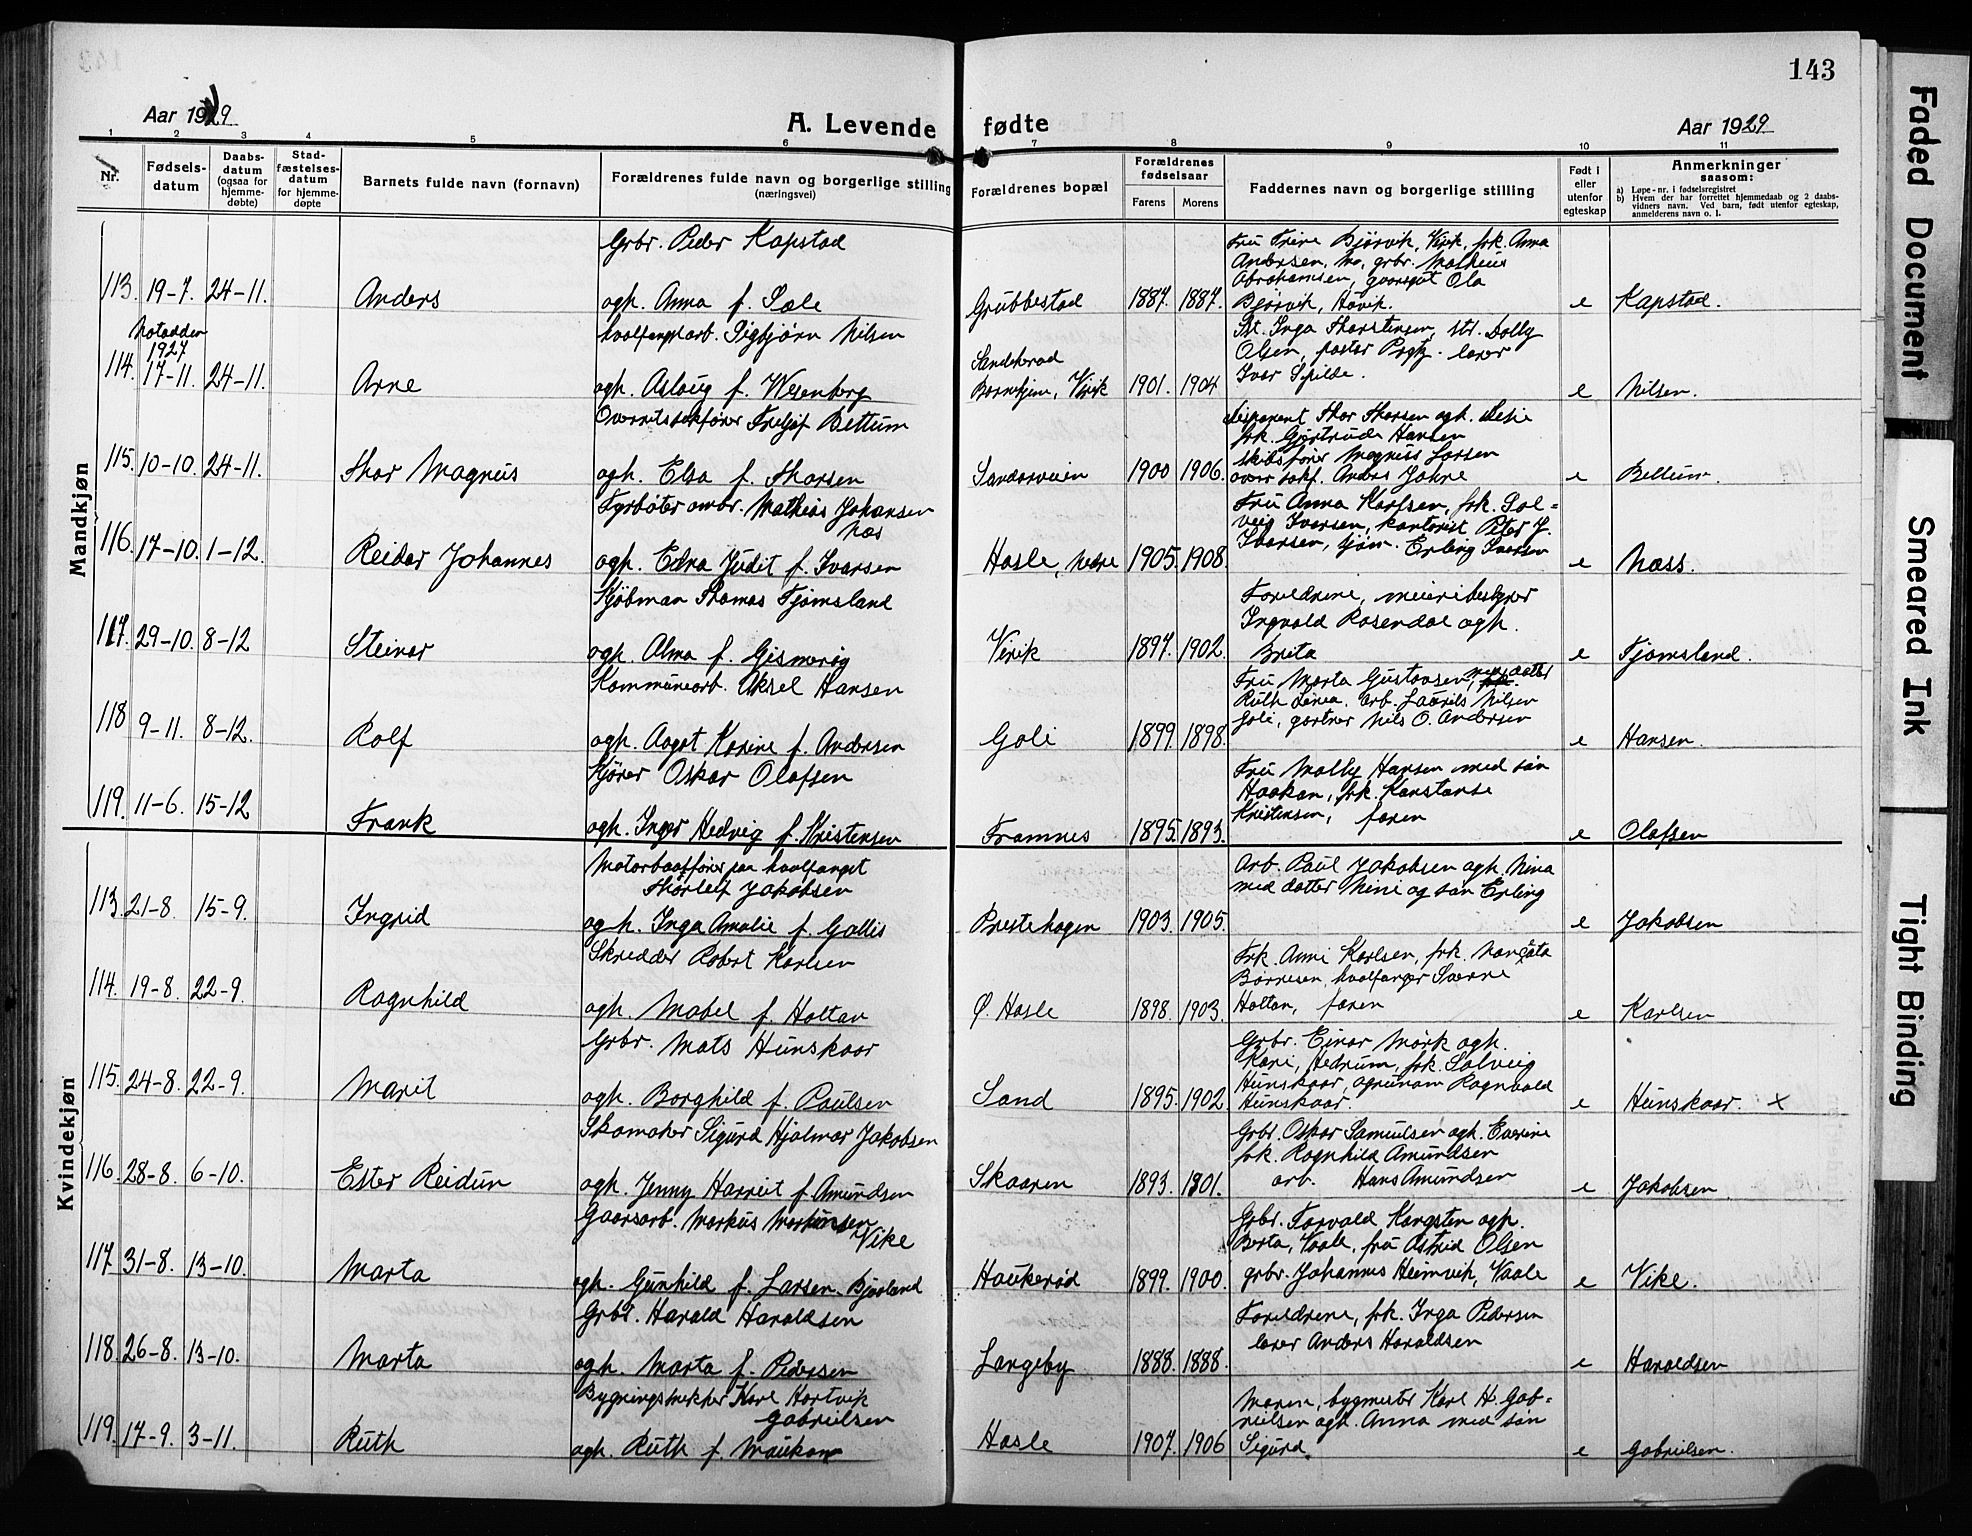 143
Aar 1929
A. Levende fødte
Aar 1929
1 2 3 4 5 6 7 8 9 10 11
Nr.
Fødsels-
datum
Daabs-
datum
(ogsaa for
hjemme-
døbte)
Stad-
fæstelses-
datum
for hjemme-
døpte
Barnets fulde navn (fornavn)
Forældrenes fulde navn og borgerlige stilling
(næringsvei)
Forældrenes bopæl
Forældrenes
fødselsaar
Farens Morens
Faddernes navn og borgerlige stilling
Født i
eller
utenfor
egteskap
Anmerkninger
saasom:
a) Løpe-nr. i fødselsregistret
b) Hvem der har forrettet hjemmedaab og 2 daabs-
vidners navn. Ved barn, født utenfor egteskap,
anmelderens navn o. l.
Mandkjøn
113. 19-7. 24-11. Anders
Grbr. Peder Kapstad
ogh. Anna f. Sole
Grubbestad 1887. 1887.
Fru Trine Bjørvik, Virik, frk. Anna
Andersen, grbr. Mathius
Abrahamsen, Ola
Bjørvik, Haavik.
e Kapstad.
Notodden
1927
114. 17-11. 24-11. Arne
hvalfangstarb. Sigbjørn Nilsen
ogh. Aslaug f. Wesenberg
Sandeherad
Barnehjem, Virik 1901. 1904
Inga Thorstensen, Dolly
Olsen, pastor lærer
Ivar Spilde.
e Nilsen.
115. 10-10. 24-11. Thor Magnus
Overretssakfører Fritjof Bettum
ogh. Elsa f. Thorsen
Sandarveien 1900 1906.
disponent Thor Thorsen ogh.
frk. Gjertrude Hansen
skibsfører Magnus Larsen
over sakf. Anders Jahre
e Bettum.
116. 17-10. 1-12. Reidar Johannes
Fyrbøter ombr. Mathias Johansen
Næs
ogh. Edna Judit f. Ivarsen
Hasle, nedre 1905. 1908.
Fru Anna Karlsen, frk. Sol-
veig Ivarsen, kontorist Peter J.
Ivarsen, sjøm. Erling Ivarsen
e Næss.
117. 29-10. 8-12 Steinar
Kjøbman Thomas Fjømsland
ogh. Alma f. Gismerøg
Virik 1897. 1902.
Forældrene, meieribestyrer
Ingvald Rosendal ogh.
Brita
e Fjømsland.
118 9-11. 8-12. Rolf
Kommunearb. Aksel Hansen
ogh. Aagot Karine f. Andersen
Goli 1899. 1898.
Fru Marta Gustavsen, med datter
Ruth Linea, arb. Laurits Nilsen
Goli, gartner Nils O. Andersen
e Hansen.
119. 11-6. 15-12 Frank
Kjører Oskar Olafsen
ogh. Inger Hedvig f. Kristensen
Framnes 1895. 1893.
Fru Molly Hansen med søn
Haakon, frk. Konstanse
Kristensen, faren
e Olafsen
Kvindekjøn
113. 21-8. 15-9. Ingrid
Motorbaatfører paa hvalfangst
Thorleif Jakobsen
ogh. Inga Amalie f. Gallis
Prestehagen 1903. 1905.
Arb. Paul Jakobsen ogh. Nina
med datter Nini og søn Erling
e Jakobsen
114. 19-8. 22-9. Ragnhild
Skredder Robert Karlsen
ogh. Mabel f. Holtan
Ø. Hasle 1898. 1903.
Frk. Anni Karlsen, frk.
Børresen, hvalfanger Sverre
Holtan, faren
e Karlsen
115. 24-8. 22-9. Marit
Grbr. Mats Hunskaar
ogh. Borghild f. Paulsen
Sand 1895. 1902
Grbr. Einar Mørk ogh.
Kari, Hedrum, frk. Solveig
Hunskaar, agrunom Ragnvald
Hunskaar.
e Hunskaar. x
116. 28-8. 6-10. Ester Reidun
Skomaker Sigurd Hjalmar Jakobsen
ogh. Jenny Harriet f. Amundsen
Skaaren 1893. 1901.
Grbr. Oskar Samuelsen ogh. Everine
frk. Ragnhild Amundsen
arb. Hans Amundsen
e Jakobsen.
117. 31-8. 13-10. Marta
Gaardsarb. Markus Martinsen
Vike
ogh. Gunhild f. Larsen Bjørland
Haukerød 1899. 1900.
Grbr. Torvald Kongsten ogh.
Berta, Vaale, fru Astrid Olsen
grbr. Johannes Heimvik, Vaale
e Vike.
118. 26-8. 13-10. Marta
Grbr. Harald Haraldsen
ogh. Marta f. Pedersen
Langeby 1888. 1888.
Forældrene, frk. Inga Pedersen
lærer Anders Haraldsen
e Haraldsen
119. 17-9. 3-11. Ruth
Bygningssnekker Karl Hartvik
Gabrielsen
ogh. Ruth f. Maukon
Hasle 1907. 1906
Moren, bygmester Karl H. Gab-
rielsen ogh. Anna med søn
Sigurd.
e Gabrielsen.
Faded Document
Smeared Ink
Tight Binding